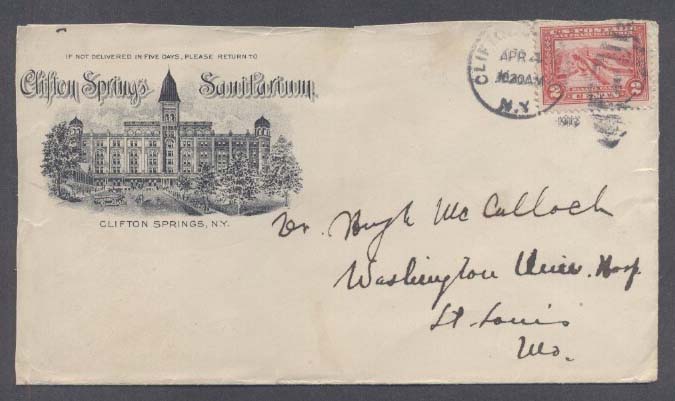 IF NOT DELIVERED IN FIVE DAYS, PLEASE RETURN TO
Clifton Springs Sanitarium,
CLIFTON SPRINGS, N.Y.
CLIFTON
APR 4
10 30 AM
N.Y.
1913
U.S. POSTAGE
2 CENTS 2
Dr. Hugh McCulloch
Washington Univ. Hosp
St. Louis
Mo.